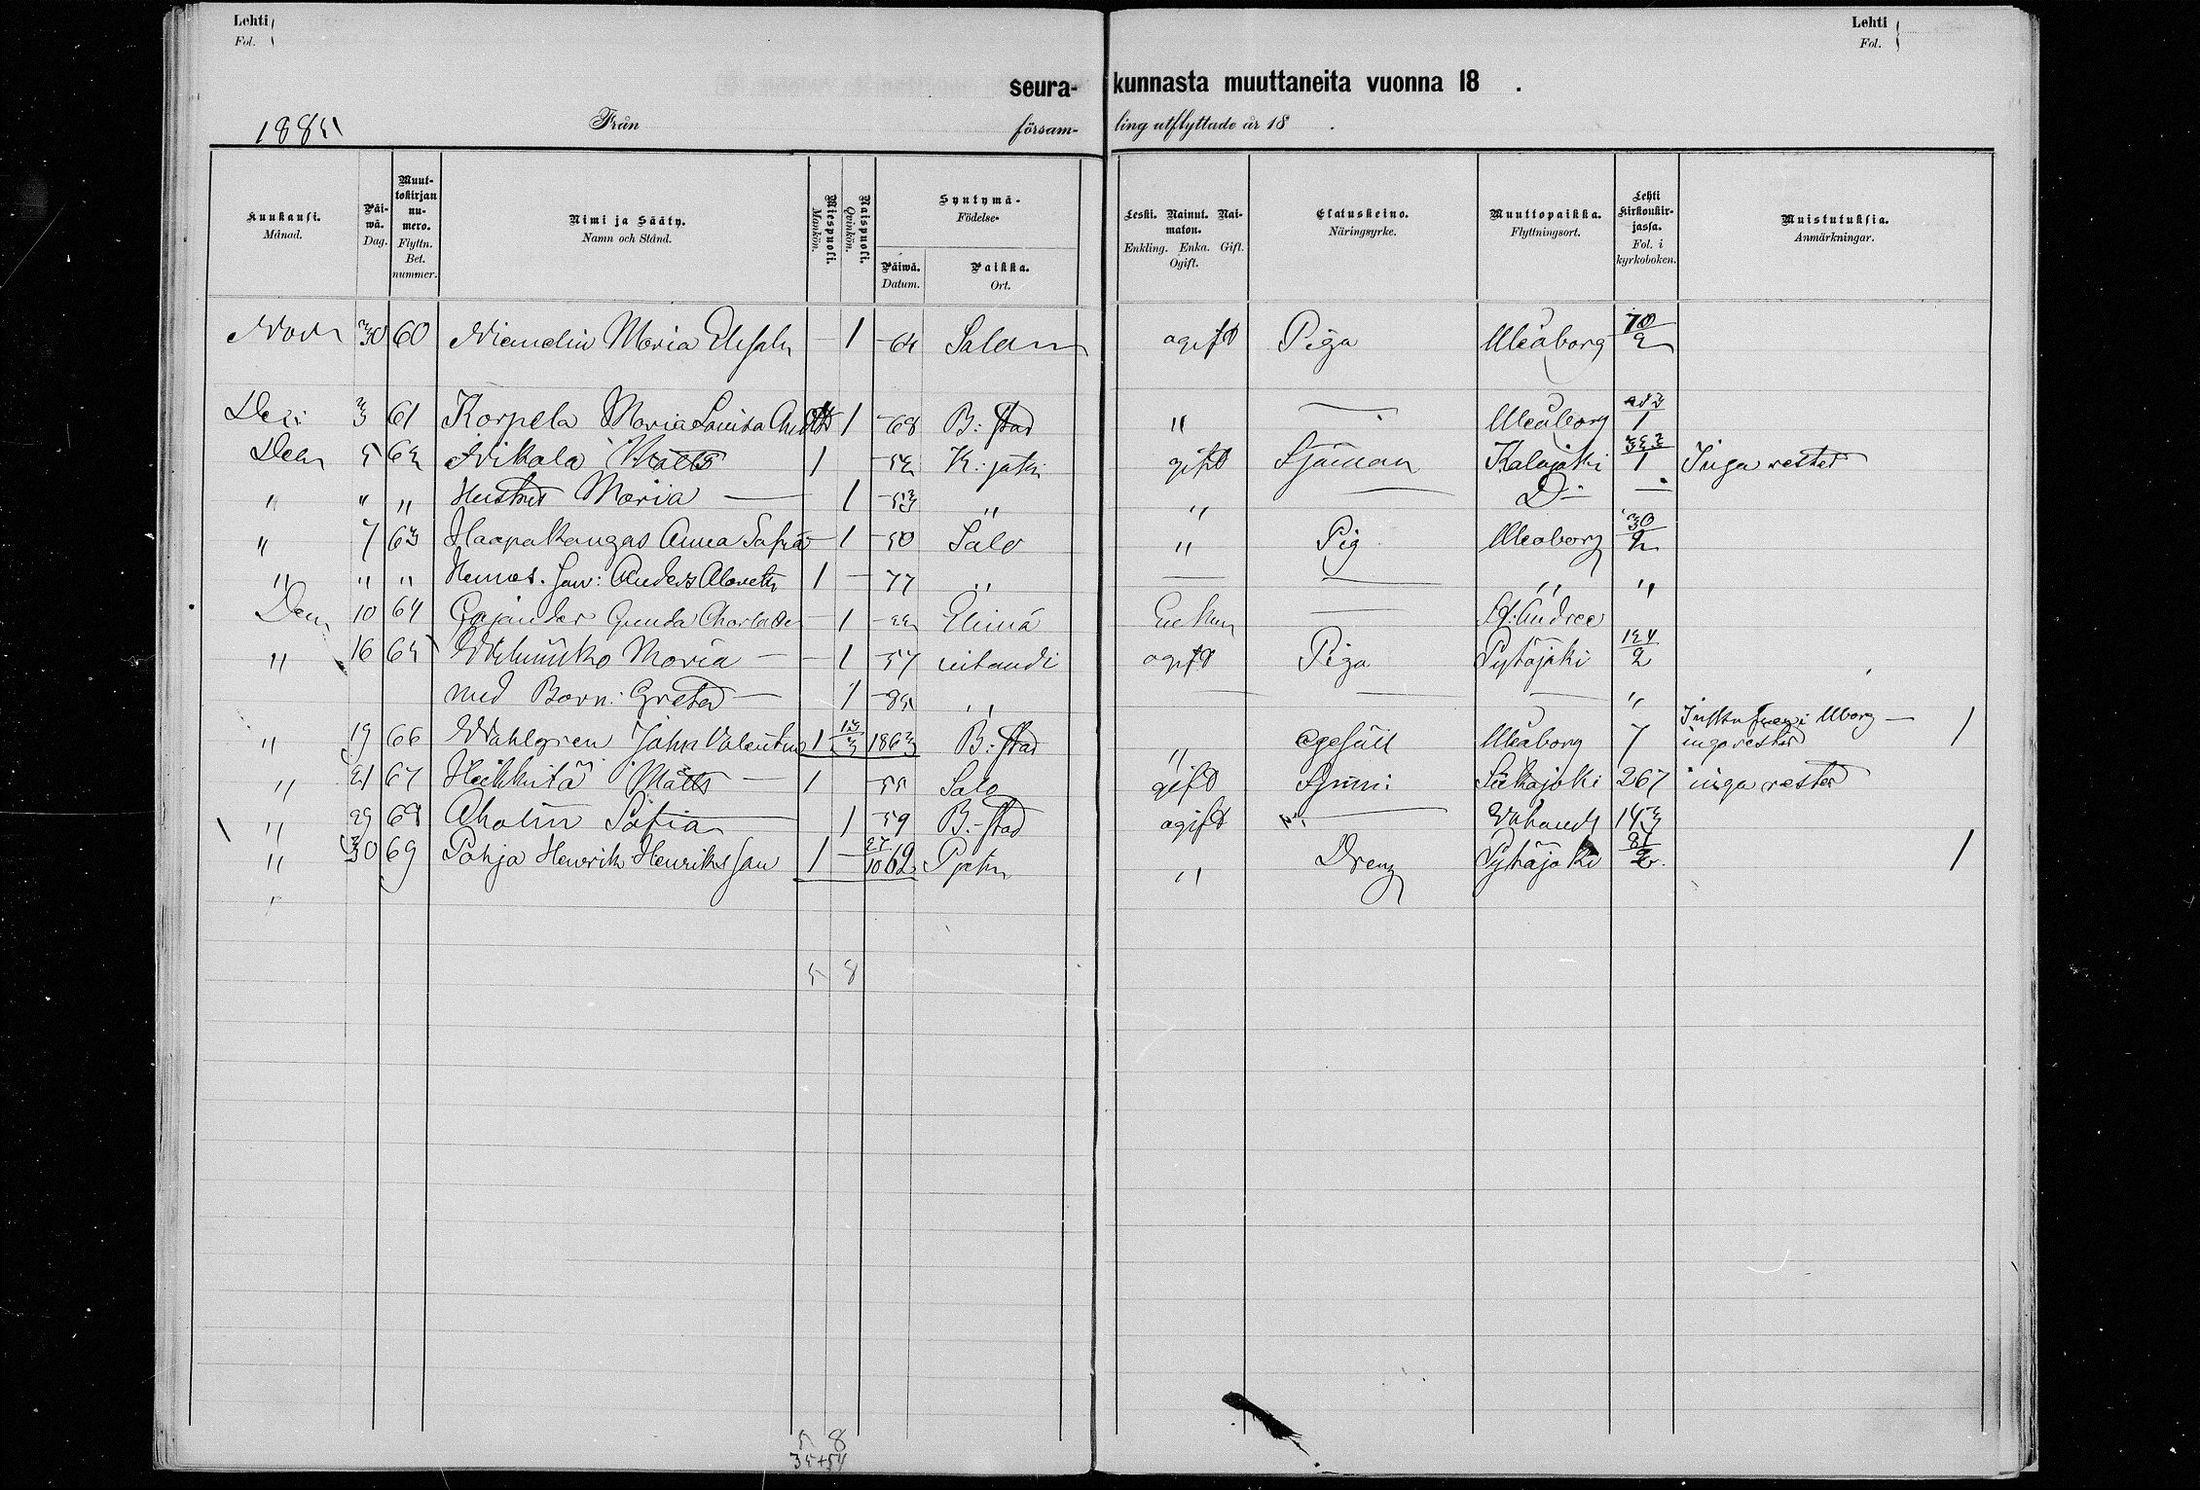 Lehti
Fol.
Lehti
Fol.
seura-kunnasta muuttaneita vuonna 18 .
1885 Från försam-ling utflyttade år 18 .
Kuukausi. Månad.
Päi-wä. Dag.
Muut-tokirjan nu-mero. Flyttn. Bet. nummer.
Nimi ja Sääty. Namn och Stånd.
Miespuoli. Mankön.
Naispuoli. Qvinkön.
Syntymä- Födelse-
Päiwä. Datum.
Paikka. Ort.
Leski. Nainut. Nai-maton. Enkling. Enka. Gift. Ogift.
Elatuskeino. Näringsyrke.
Muuttopaikka. Flyttningsort.
Lehti Kirkonkir-jassa. Fol. i kyrkoboken.
Muistutuksia. Anmärkningar.
Nov 30 60 Niemelin Maria Elisab — 1 -64 Salo ogift Piga Uleåborg 70/2
Dec: 3 61 Korpela Maria Lovisa 1 -68 B: stad " — Uleåborg
Dec 5 62 Matts 1 -52 K: joki gift Sjöman Kalajoki 1 Inga rester
" " " Hustru Maria — 1 -53 " " — Do —
" 7 63 Haapakangas Anna Sofia — 1 -50 Salo " Pig Uleaborg 30/2
" " " Hennes Son: Anders 1 — 77 " — — " "
Dec 10 64 Cajander — 1 -22 Elimä Enka — St: Andree
" 16 65 Maria — — 1 -57 ogift Piga Pyhäjoki 124/2
med Barn: Greta — 1 -85 " — — — "
" 19 66 Wahlgren Johan Valentin 1 1863 B: stad " gesäll Uleåborg 7 Uborg — inga rester 1
" 21 67 Heikkilä Matts — 1 55 Salo gift Siikajoki 267 inga rester
" 29 68 Aholin Sofia — 1 59 B.-stad ogift — 143
" 30 69 Pohja Henrik Henriksson 1 — 27/10 62 P joki " Dreng Pyhäjoki 81/2 1
"
5 8
5 8
35+54